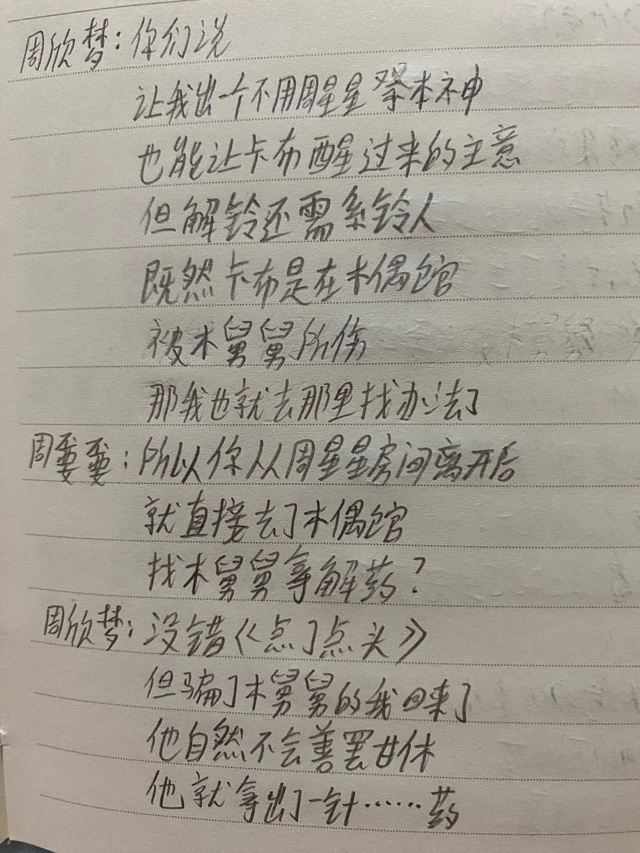 周欣梦：你们说
让我出一个不用周星星祭本神
也能让卡布醒过来的主意
但解铃还需系铃人
既然卡布是在木偶馆
被木舅舅所伤
那我也就去那里找办法了
周要要：所以你从周星星房间离开后
就直接去了木偶馆
找木舅舅拿解药？
周欣梦：没错《点了点头》
但骗了木舅舅的我回来了
他自然不会善罢甘休
他就拿出了一针……药